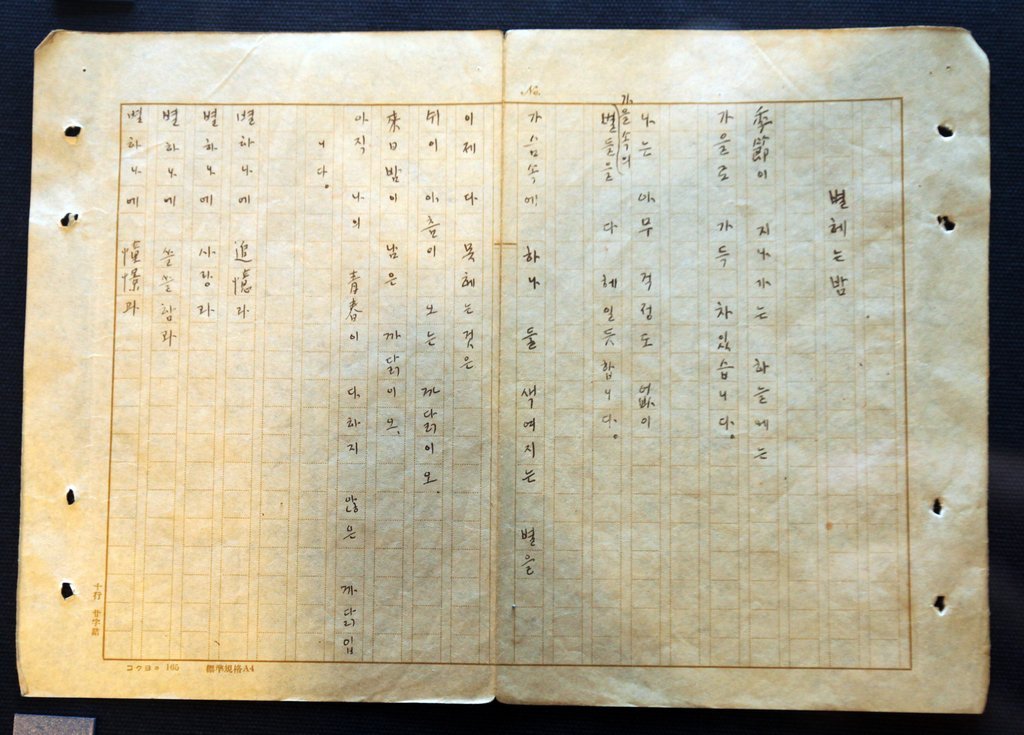 No.
별헤는밤
季節이 지나가는 하늘에는
가을로 가득 차있습니다.
나는 아무 걱정도 없이
가을속의 별들을 다 헤일듯합니다.
가슴속에 하나 둘 색여지는 별을
이제 다 못헤는것은
쉬이 아츰이 오는 까닭이오,
來日밤이 남은 까닭이오,
아직 나의 靑春이 다하지 않은 까닭입
니다.
별하나에 追憶과
별하나에 사랑과
별하나에 쓸쓸함과
별하나에 憧憬과
十行 廿字詰
コクヨ 165 標準規格A4